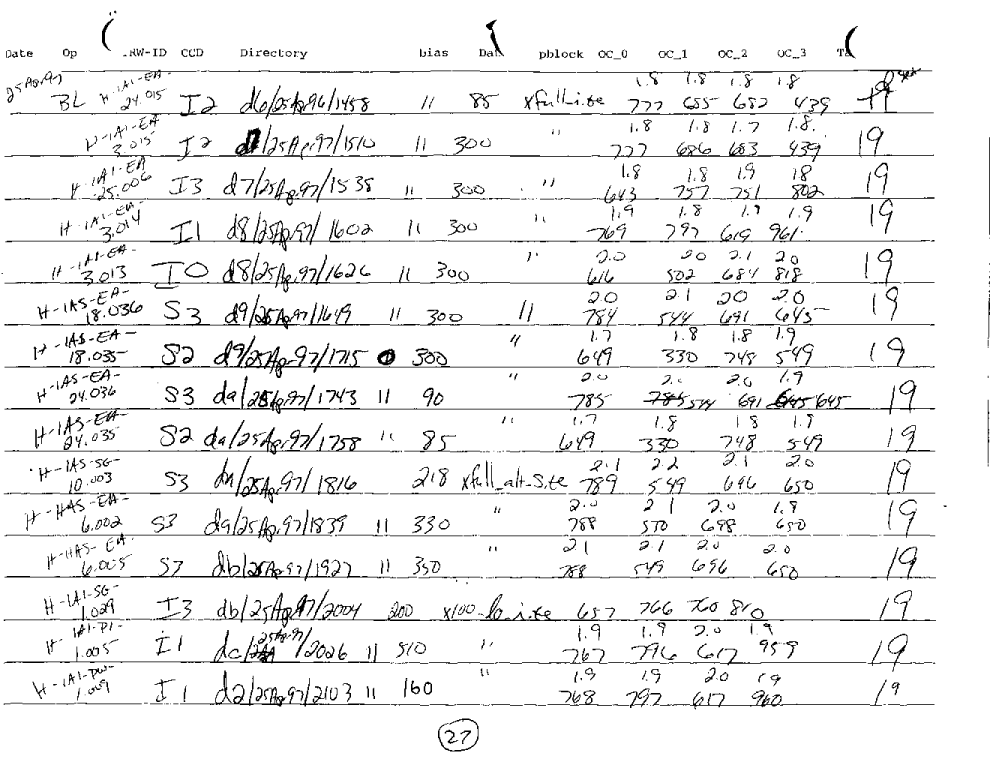 Date Op .RW-ID CCD Directory bias Dat pblock OC_0 OC_1 OC_2 OC_3
1.8 1.8 1.8 1.8
BL H-IAI-EA-24.015 I2 d6/25Apr96/1458 11 85 xfull.ite 777 685 682 439
1.8 1.8 1.7 1.8.
H-IAI-EA 3.015 I2 /25Apr97/1510 11 300 " 777 686 683 439 19
1.8 1.8 1.9 18
H-IAI-EA 25.006 I3 d7/25Apr97/1535 11 300 " 643 757 751 802 19
1.9 1.8 1.9 1.9
H-IAI-EA- 3.014 I1 d8/25Apr97/1602 11 300 " 769 797 619 961 19
2.0 20 2.1 20
H-IAI-EA- 3.013 I0 d8/25Apr97/1626 11 300 " 616 502 684 818 19
2.0 21 20 2.0
H-IAS-EA- 18.036 S3 d9/25Apr97/1649 11 300 11 784 544 691 645 19
1.7 1.8 1.8 1.9
H-IAS-EA- 18.035 S2 d9/25Apr97/1715 300 " 649 330 748 549 19
2.0 2.0 2.0 1.9
H-IAS-EA- 24.036 S3 da/25Apr97/1743 11 90 " 785 544 691 645 19
1.7 1.8 18 1.9
H-IAS-EA- 24.035 S2 da/25Apr97/1758 11 85 " 649 330 748 549 19
2.1 2.2 2.1 2.0
H-IAS-SG- 10.003 S3 da/25Apr97/1816 218 xfull_alt_S.te 789 549 696 650 19
2.0 21 2.0 1.9
H-HAS-EA- 6.002 S3 da/25Apr97/1839 11 330 " 788 550 698 650 19
21 2.1 2.0 2.0
H-HAS-EA- 6.005 S3 db/25Apr97/1927 11 350 " 788 549 696 650 19
H-IAI-SG- 1.029 I3 db/25Apr97/2004 200 x100 657 766 760 810 19
1.9 1.9 2.0 1.9
H-IAI-PI- 1.005 I1 dc/25Apr97/2026 11 510 " 767 796 617 959 19
1.9 1.9 2.0 19
H-IAI-PW- 1.009 I1 d2/25Apr97/2103 11 160 " 768 797 617 960 19
27